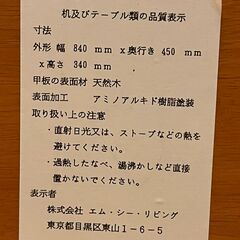 机及びテーブル類の品質表示
寸法
外形 幅 840 mm x奥行き 450 mm
x高さ 340 mm
甲板の表面材 天然木
表面加工 アミノアルキド樹脂塗装
取り扱い上の注意
・直射日光又は、ストーブなどの熱を
避けてください。
・過熱したなべ、湯沸かしなど直接
置かないでください。
表示者
株式会社 エム・シー・リビング
東京都目黒区東山1-6-5